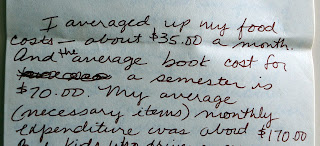 I averaged up my food
costs — about $35.00 a month.
And the average book cost for
a semester is
$70.00. My average
(necessary items) monthly
expenditure was about $170.00
kids who drive